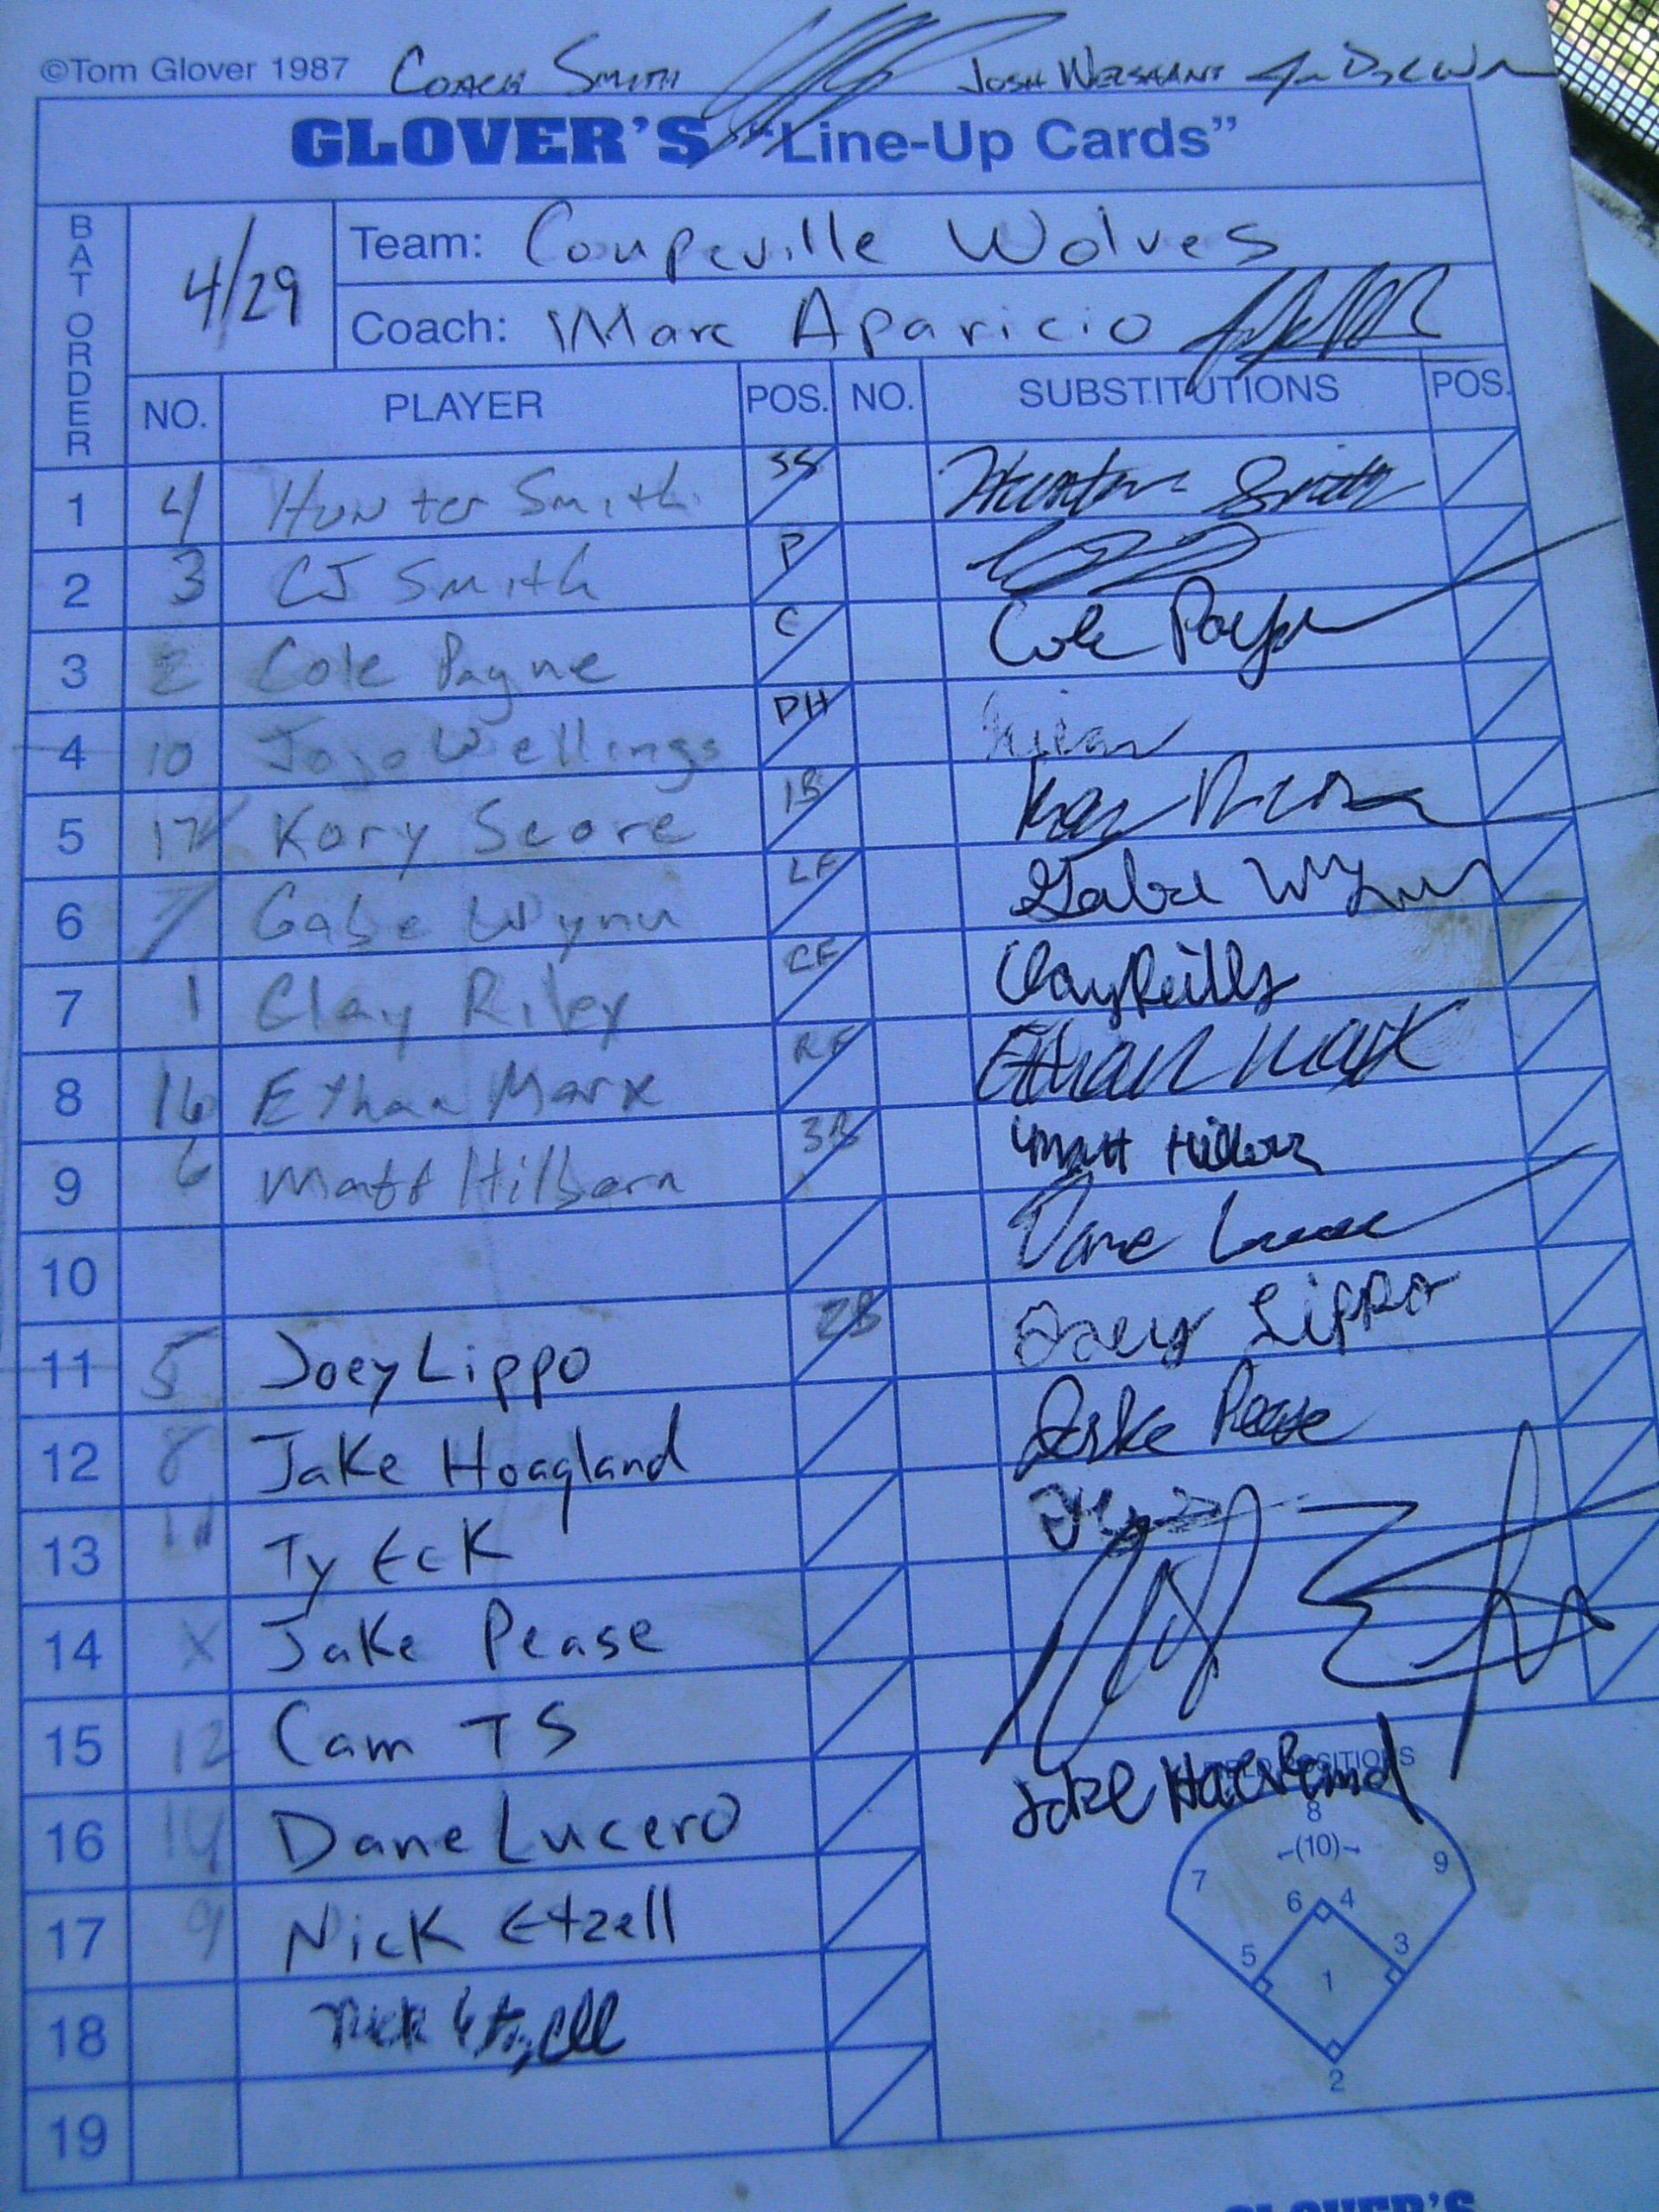 ©Tom Glover 1987 COACH SMITH JOSH WELSHANS
GLOVER'S "Line-Up Cards"
BAT ORDER
4/29
Team: Coupeville Wolves
Coach: Marc Aparicio
NO. PLAYER POS. NO. SUBSTITUTIONS POS.
1 4 Hunter Smith SS Hunter Smith
2 3 CJ Smith P
3 2 Cole Payne C Cole Payne
4 10 JoJo Wellings DH
5 17 Kory Score 1B
6 7 Gabe Wynn LF Gabe Wynn
7 1 Clay Riley CF Clay Reilly
8 16 Ethan Marx RF Ethan Marx
9 6 Matt Hilborn 3B Matt Hilborn
10 Dane
11 5 Joey Lippo 2B Joey Lippo
12 8 Jake Hoagland Jake Pease
13 11 Ty Eck
14 X Jake Pease
15 12 Cam TS
16 14 Dane Lucero
17 9 Nick Etzell
18 Nick Etzell
19
Jake Hoagland
POSITIONS
8
-(10)-
7 9
6 4
5 3
1
2
GLOVER'S